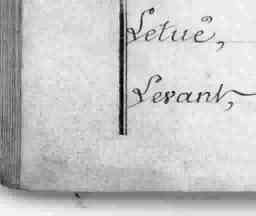 Letué,
Levant,